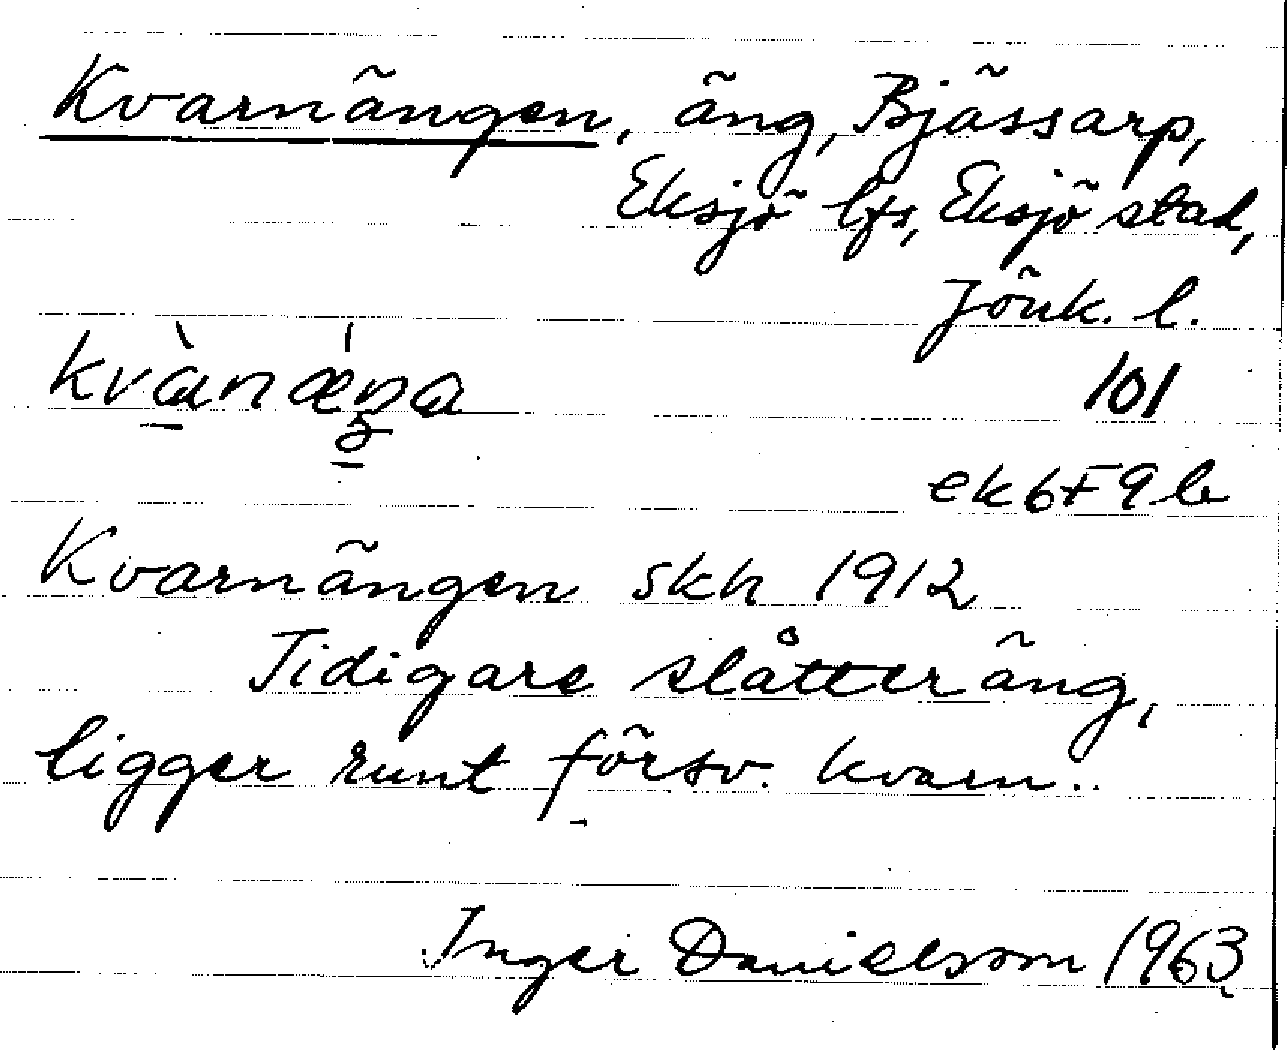 Kvarnängen, äng, Bjässarp,
Eksjö lfs, Eksjö stad,
Jönk. l.
kvànǽŋa
101
ek6F9b
Kvarnängen skh 1912
Tidigare slåtteräng,
ligger runt försv. kvarn..
Inger Danielsson 1963